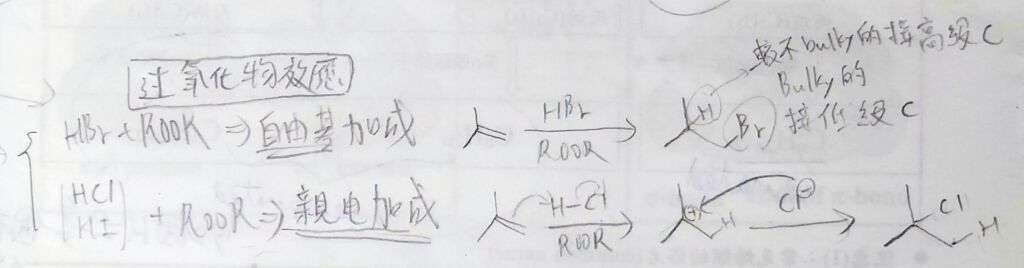 較不bulky的接高級C
Bulky的
接低級C
过氧化物效應
HBr + ROOR ⇒ 自由基加成 HBr ROOR H Br
HCl HI + ROOR ⇒ 親电加成 H-Cl ROOR ⊕ H Cl⊖ Cl H